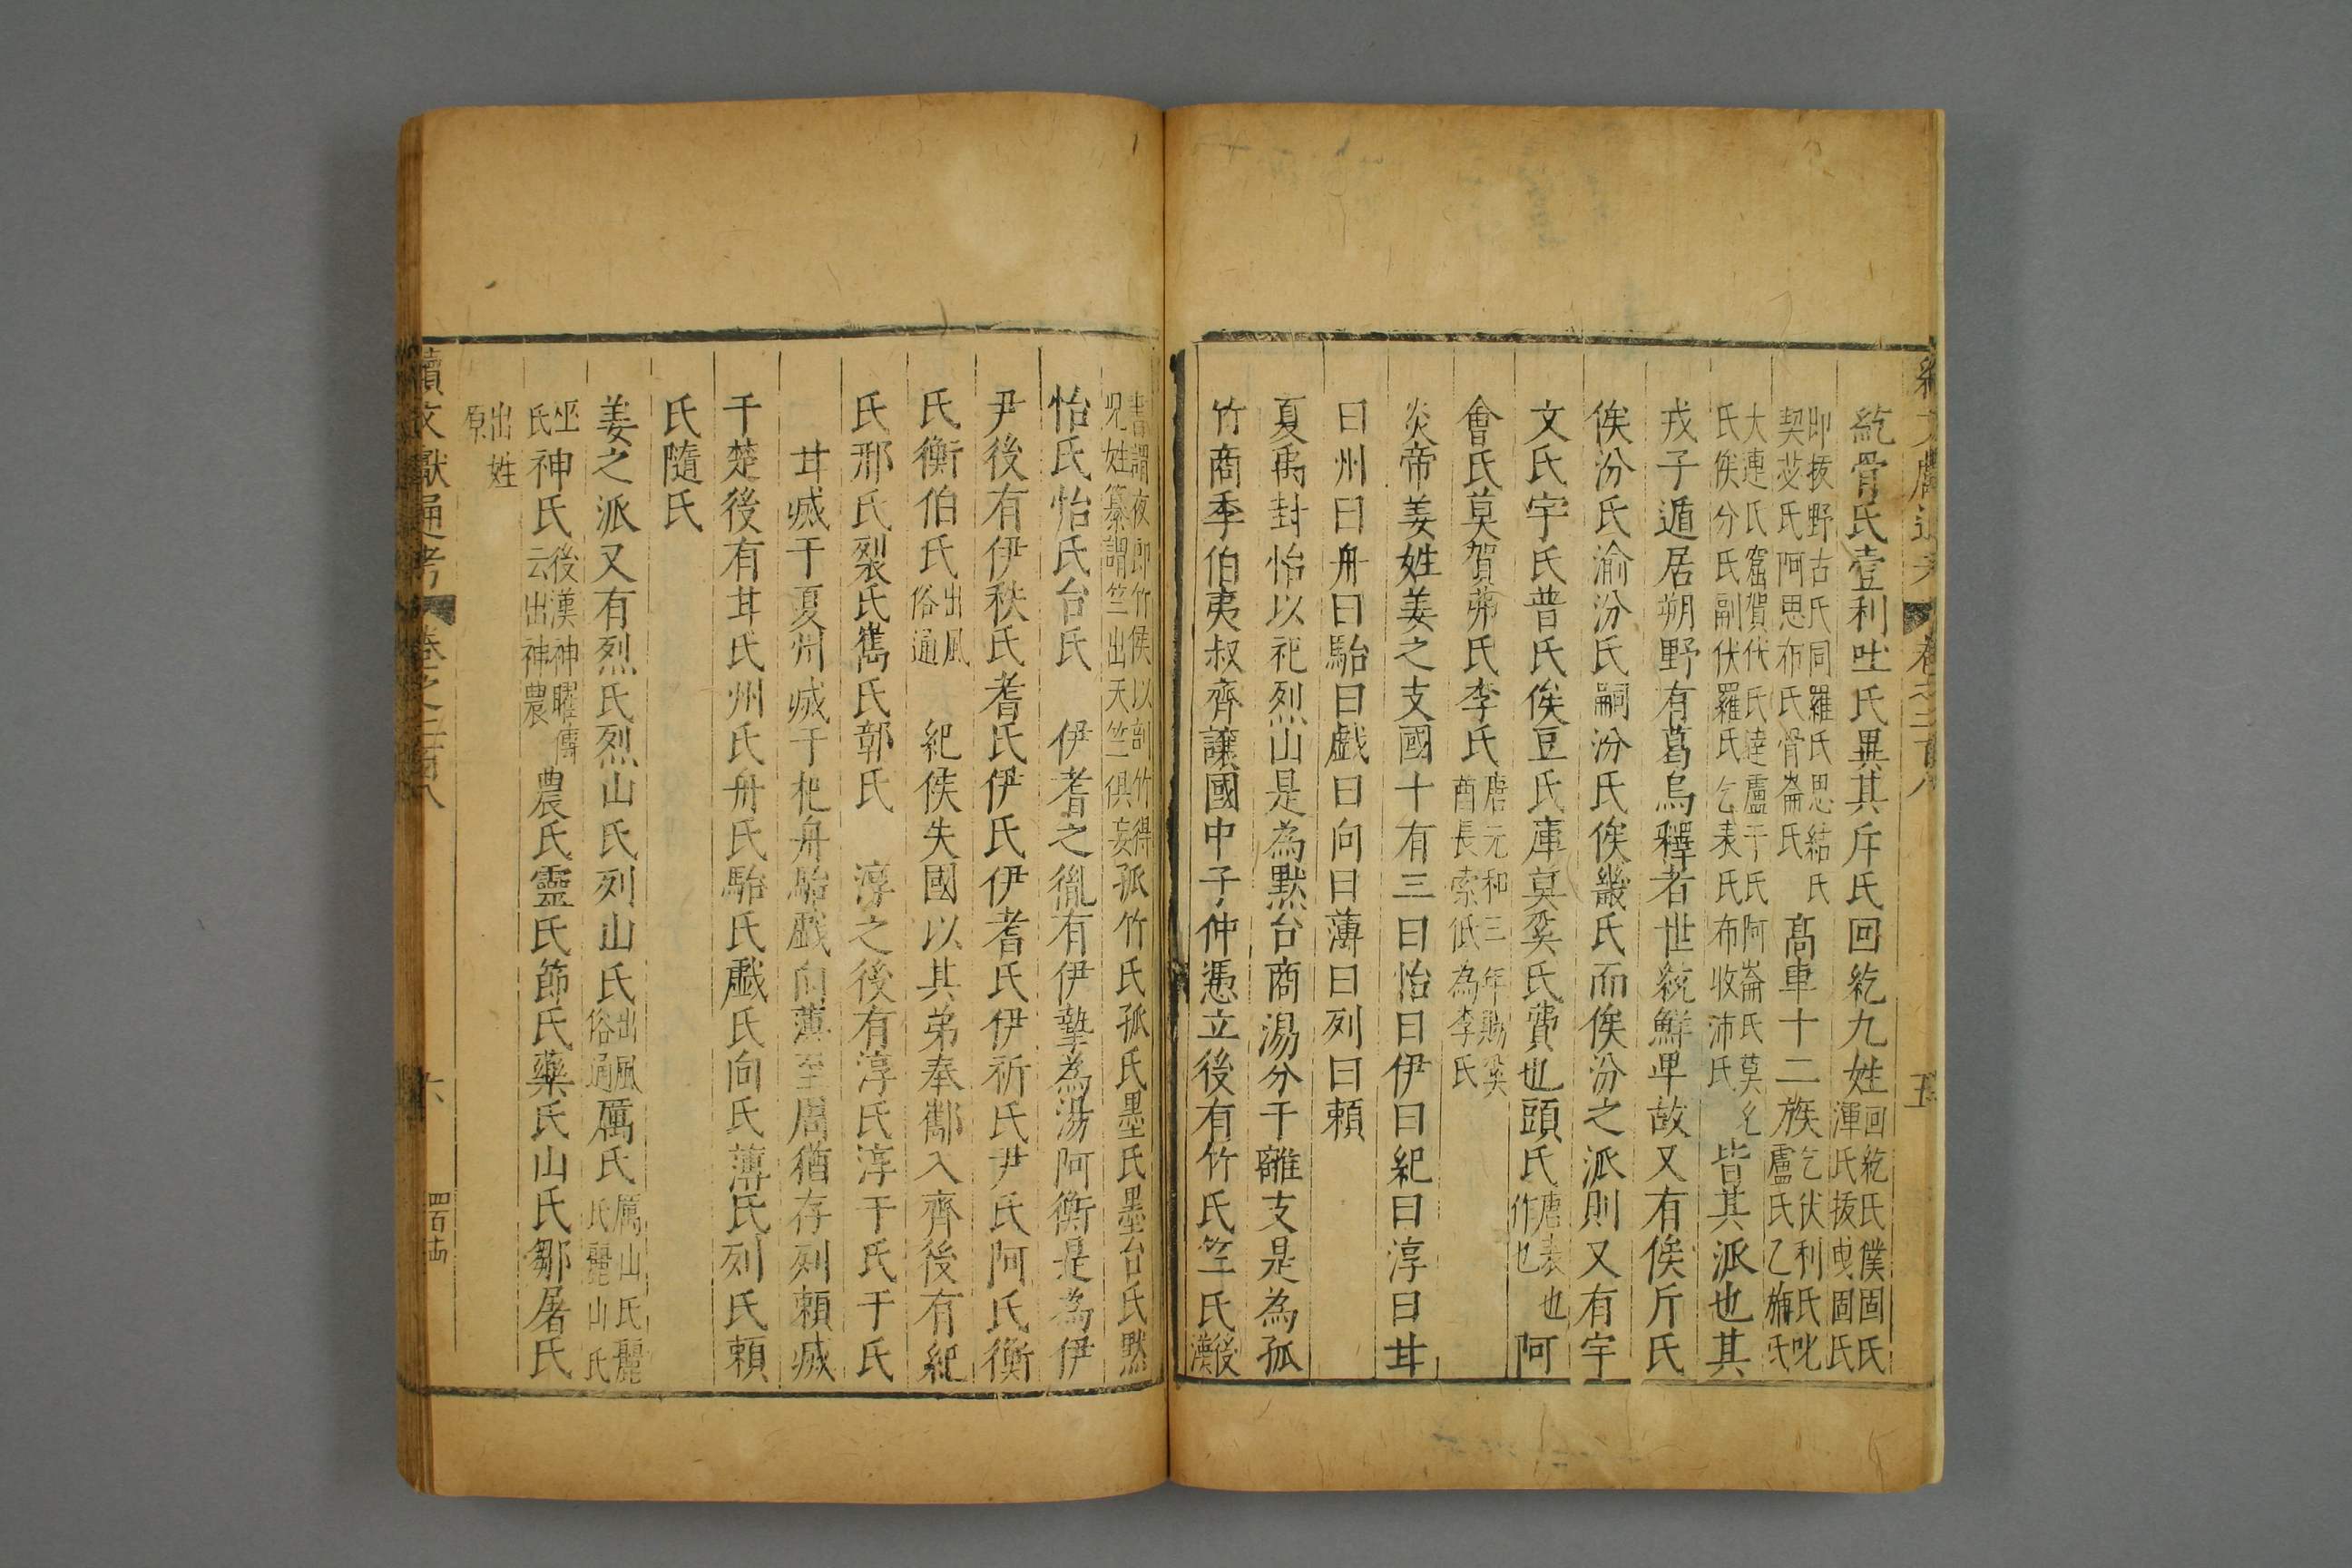 紇骨氏壹利吐氏異其斥氏回紇九姓回紇氏僕固氏渾氏拔曳固氏
即拔野古氏同羅氏思結氏契苾氏阿思布氏骨崙氏高車十二族乞伏利氏叱盧氏乙旃氏
大連氏窟賀伏氏達盧干氏阿崙氏莫允氏俟分氏副伏羅氏乞表氏布收沛氏皆其派也其
戎子遁居朔野有葛烏釋者世統鮮卑故又有俟斤氏
俟汾氏渝汾氏嗣汾氏俟畿氏而俟汾之派則又有宇
文氏宇氏普氏俟豆氏庫莫奚氏費也頭氏唐表也作也阿
會氏莫賀弗氏李氏唐元和三年賜奚酋長索低為李氏
炎帝姜姓姜之支國十有三曰怡曰伊曰紀曰淳曰甘
曰州曰舟曰駘曰戲曰向曰薄曰列曰賴
夏禹封怡以祀烈山是為默台商湯分干離支是為孤
竹商季伯夷叔齊讓國中子仲憑立後有竹氏竺氏後漢
書謂夜郎竹侯以剖竹得姓纂謂竺出天竺俱妄孤竹氏孤氏墨氏墨台氏默
怡氏怡氏台氏 伊耆之胤有伊摯為湯阿衡是為伊
尹後有伊秩氏耆氏伊氏伊耆氏伊祈氏尹氏阿氏衡
氏衡伯氏出風俗通 紀侯失國以其弟奉酅入齊後有紀
氏邢氏裂氏雋氏鄣氏 淳之後有淳氏淳于氏于氏
甘滅干夏州滅于杞舟駘戲向薄至周猶存列賴滅
干楚後有甘氏州氏舟氏駘氏戲氏向氏薄氏列氏賴
氏隨氏
姜之派又有烈氏烈山氏列山氏出風俗通厲氏厲山氏麗氏麗山氏
巫氏神氏後漢神曜傳云出神農農氏靈氏節氏藥氏山氏鄒屠氏
出姓原
續文獻通考 卷之二百八 六 四百十四